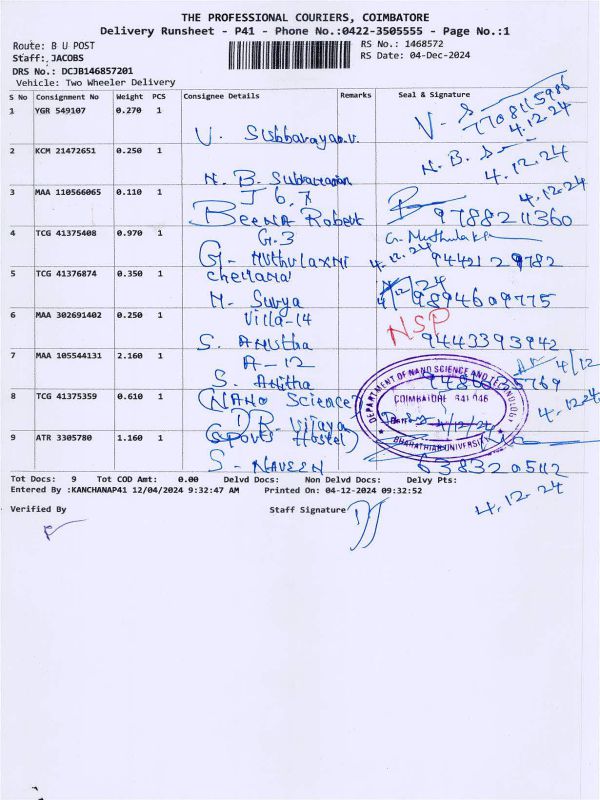 THE PROFESSIONAL COURIERS, COIMBATORE
Delivery Runsheet - P41 - Phone No.:0422-3505555 - Page No.:1
Route: B U POST
RS No.: 1468572
Staff: JACOBS
RS Date: 04-Dec-2024
DRS No.: DCJB146857201
Vehicle: Two Wheeler Delivery
S No Consignment No Weight PCS Consignee Details Remarks Seal & Signature
1 YGR 549107 0.270 1
V. Subbarayan.v. V. S 7708115986
4.12.24
2 KCM 21472651 0.250 1
N. B. Subramanian N. B. S 4.12.24
3 MAA 110566065 0.110 1 J 6, 7 4.12.24
Beena Robert 9788211360
4 TCG 41375408 0.970 1 G.3 G. Muthulak
G. Muthulaxmi 4.12.24 94421 29782
5 TCG 41376874 0.350 1 4/12/24
M. Surya 9894609775
6 MAA 302691402 0.250 1 Villa-14 NSP
S. Anistha 9443393942
7 MAA 105544131 2.160 1 A-12 4/12
S. Anitha
8 TCG 41375359 0.610 1 (Nano Science) 4.12.24
DR. Vijaya
DEPARTMENT OF NANO SCIENCE AND TECHNOLOGY
COIMBATORE 641 046
BHARATHIAR UNIVERSITY
9 ATR 3305780 1.160 1 (Sports Hostel)
S. Naveen 6383205112
4.12.24
Tot Docs: 9 Tot COD Amt: 0.00 Delvd Docs: Non Delvd Docs: Delvy Pts:
Entered By :KANCHANAP41 12/04/2024 9:32:47 AM Printed On: 04-12-2024 09:32:52
Verified By Staff Signature